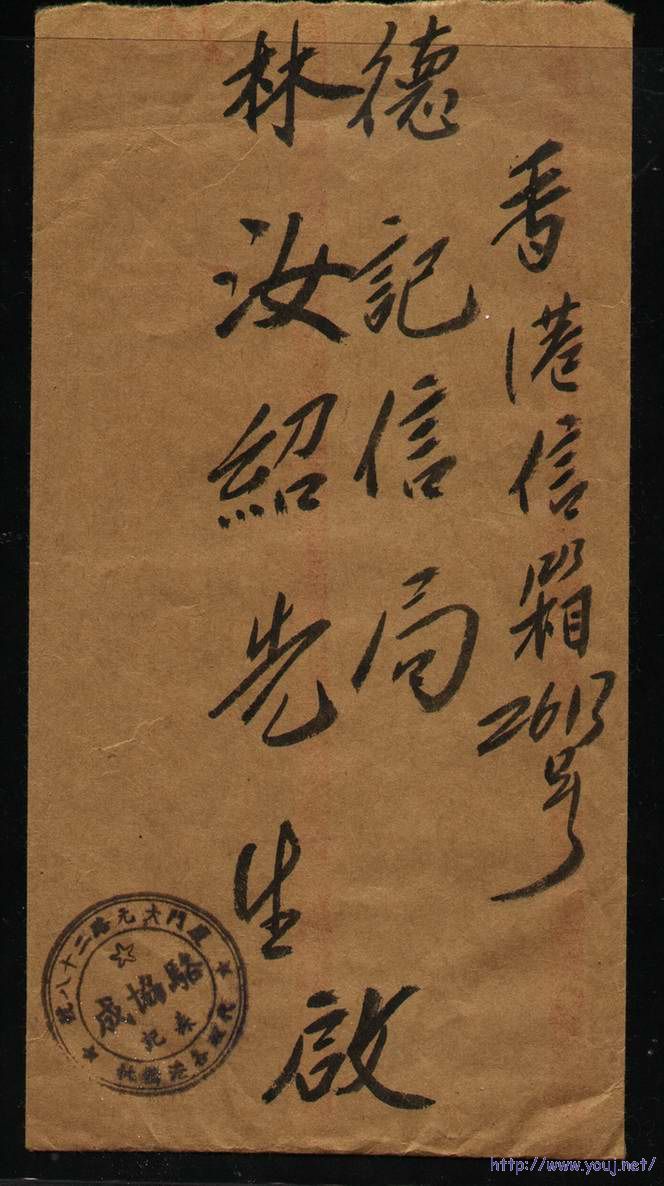 香港信箱2613号
德記信局
林汝紹先生啟
廈門大元路二十八號
駱協成
http://www.youj.net/